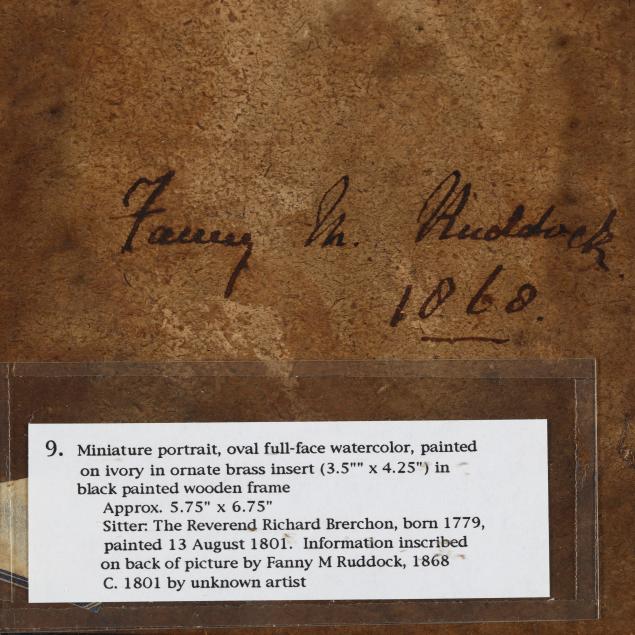 Fanny M. Ruddock.
1868.
9. Miniature portrait, oval full-face watercolor, painted
on ivory in ornate brass insert (3.5"" x 4.25") in
black painted wooden frame
Approx. 5.75" x 6.75"
Sitter: The Reverend Richard Brerchon, born 1779,
painted 13 August 1801. Information inscribed
on back of picture by Fanny M Ruddock, 1868
C. 1801 by unknown artist